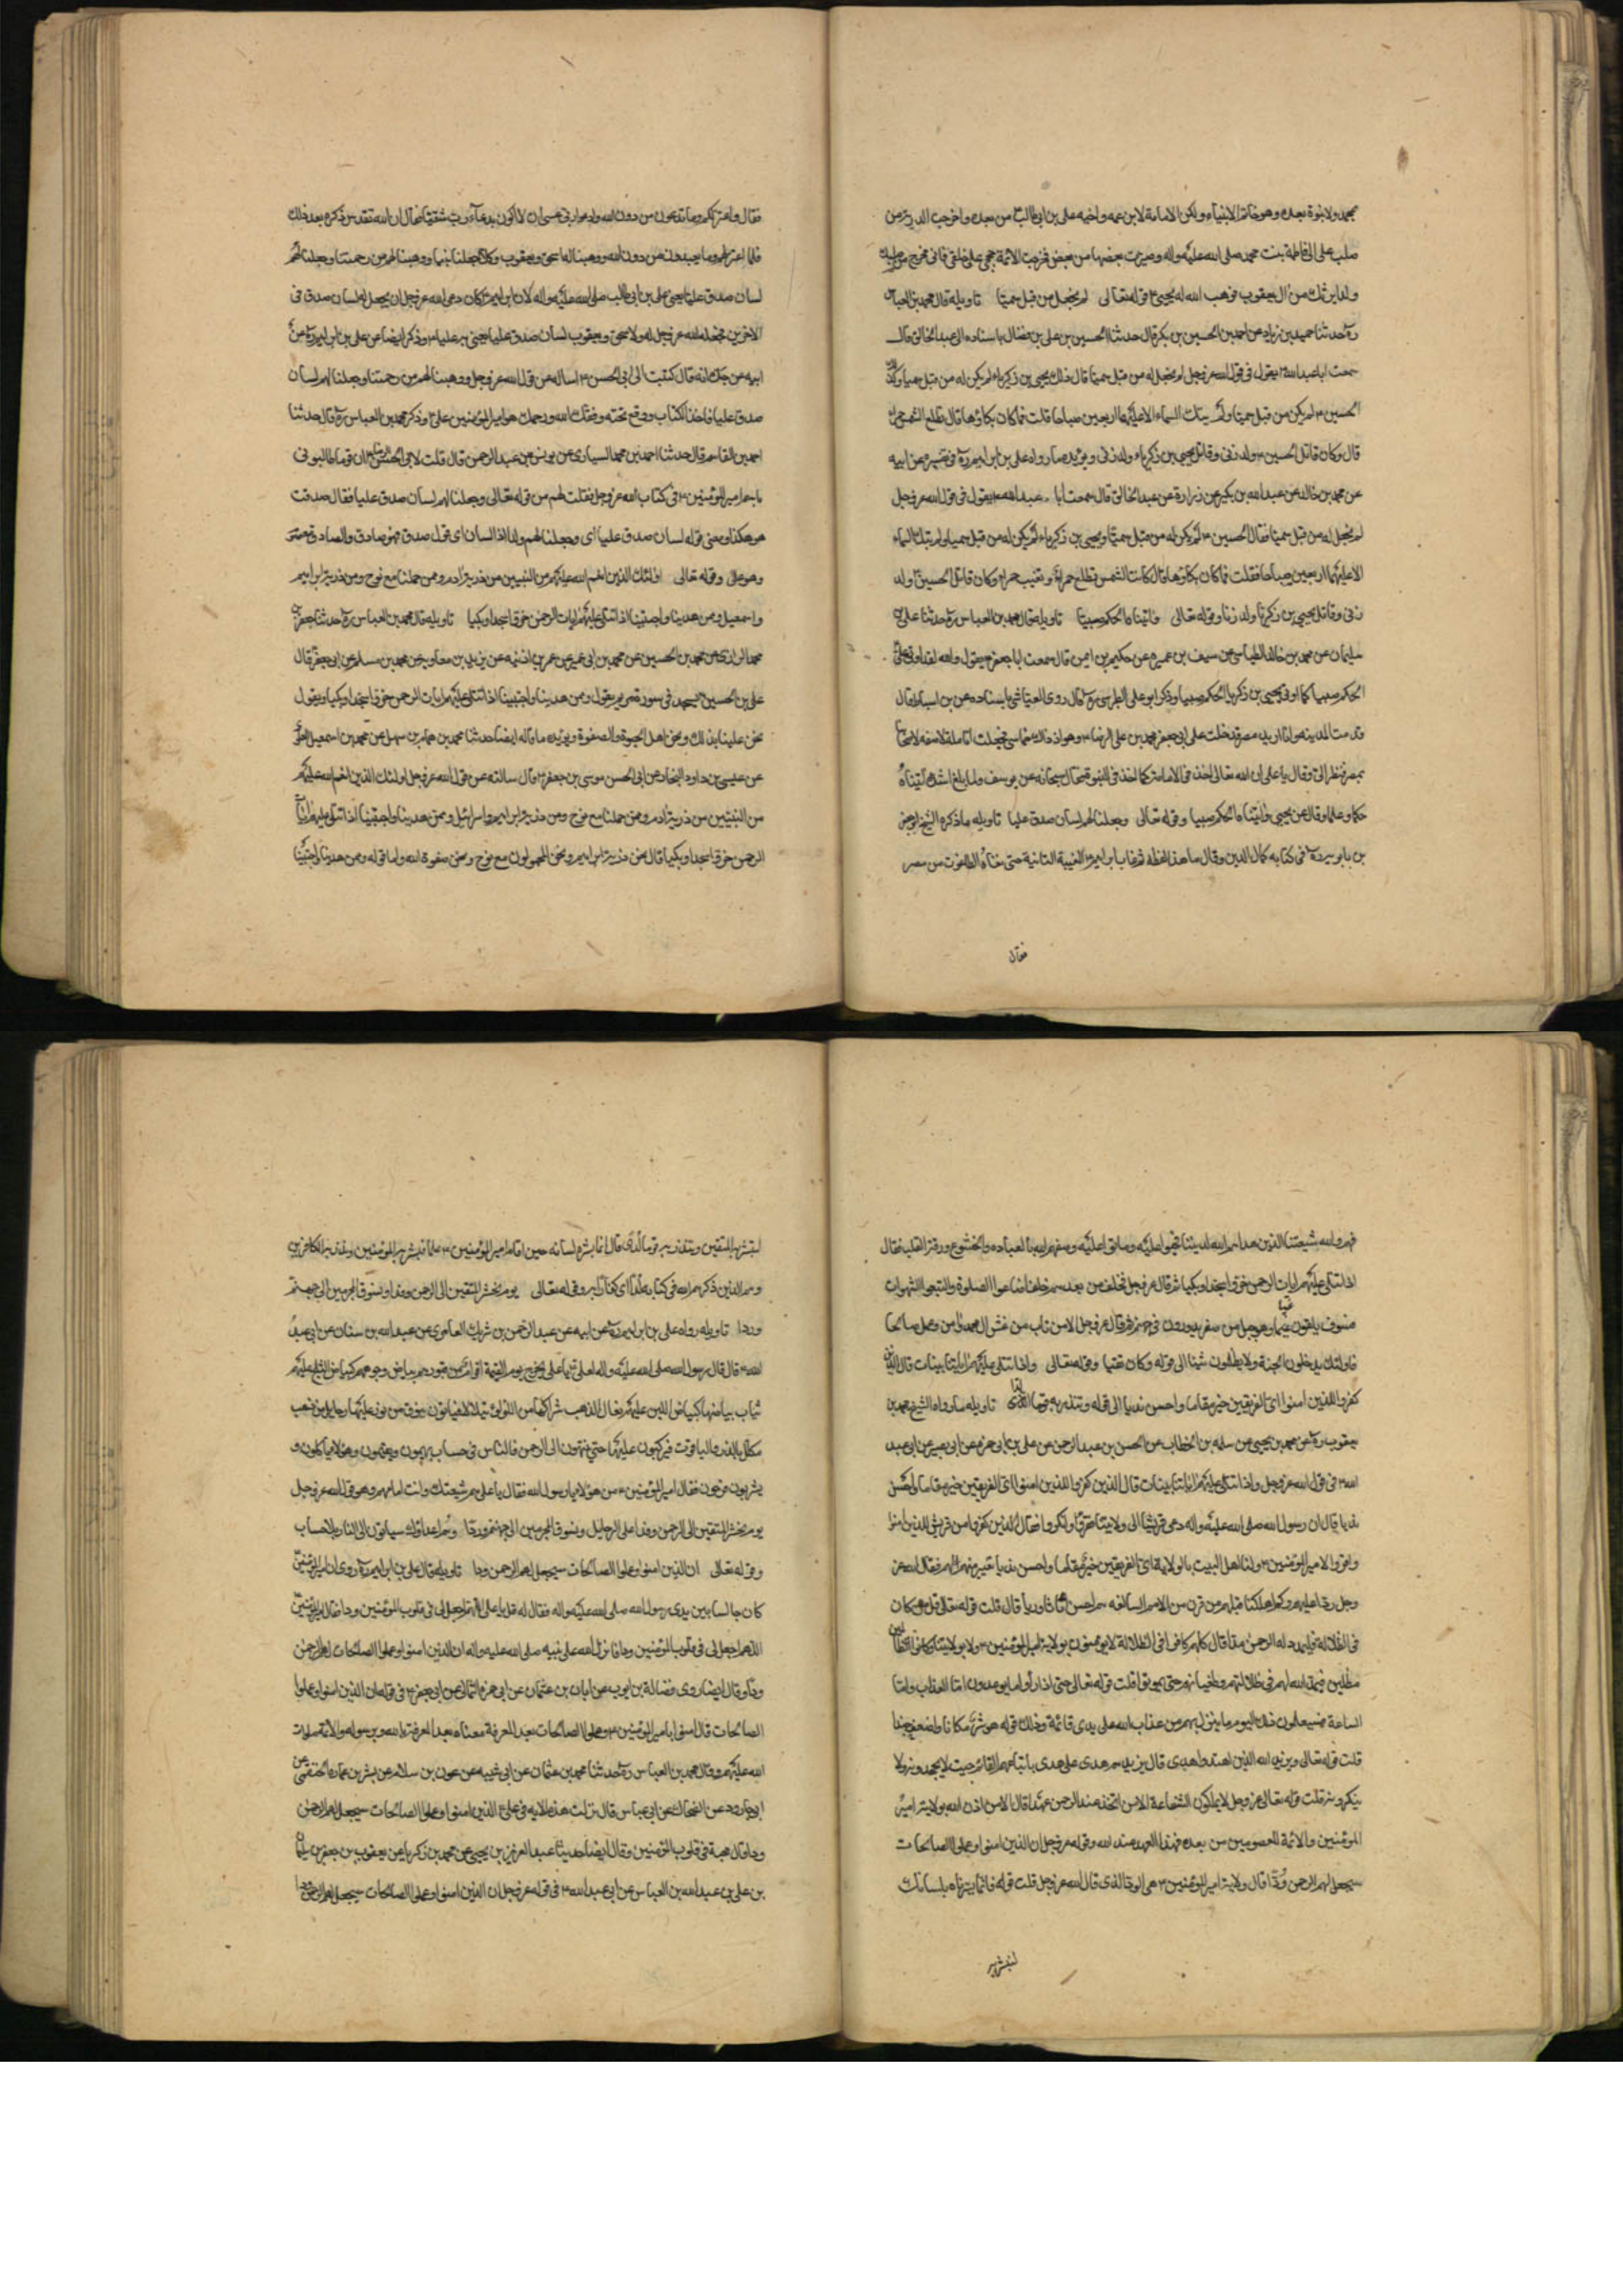 محمد ولا نبوة بعده وهو خاتم الانبياء ولكن الامامة لابن عمه واخيه على بن ابى طالب من بعده واخرجت الذرية من
صلب على الى فاطمة بنت محمد صلى الله عليه واله وصيرت بعضها من بعض فخرجت الائمة حججى على خلقى فانى مخرج من صلبك
ولدا يرثك من ال يعقوب فوهب الله له يحيى ٤ قوله تعالى لم نجعل له من قبل سميا تاويله قال محمد بن العباس
ره حدثنا حميد بن زياد عن احمد بن الحسين بن بكر قال حدثنا الحسين بن على بن فضال باسناده الى عبد الخالق قال
سمعت ابا عبد الله ٤ يقول فى قول الله عز وجل لم نجعل له من قبل سميا قال ذلك يحيى بن زكريا لم يكن له من قبل سميا وكذلك
الحسين ٤ لم يكن من قبل سميا ولم يبك السماء الا عليهما اربعين صباحا قلت فما كان بكاؤها قال تطلع الشمس حمراء
قال وكان قاتل الحسين ٤ ولد زنى وقاتل يحيى بن زكريا ولد زنى ويؤيده ما رواه على بن ابراهيم ره فى تفسيره عن ابيه
عن محمد بن خالد عن عبد الله بن بكير عن زرارة عن عبد الخالق قال سمعت ابا عبد الله ٤ يقول فى قول الله عز وجل
لم نجعل له من قبل سميا فقال الحسين ٤ لم يكن له من قبل سميا ويحيى بن زكريا لم يكن له من قبل سميا ولم تبك السماء
الا عليهما اربعين صباحا فقلت فما كان بكاؤها قال كانت الشمس تطلع حمراء وتغيب حمراء وكان قاتل الحسين ولد
زنى وقاتل يحيى بن زكريا ولد زنا وقوله تعالى واتيناه الحكم صبيا تاويله قال محمد بن العباس ره حدثنا على بن
سليمان عن محمد بن خالد الطيالسى عن سيف بن عميره عن حكيم بن ايمن قال سمعت ابا جعفر ٤ يقول والله لقد اوتى على
الحكم صبيا كما اوتى يحيى بن زكريا الحكم صبيا وذكر ابو على الطبرسى ره قال روى العياشى باسناده عن بن اسباط قال
قدمت المدينه وانا اريد مصر فدخلت على ابى جعفر محمد بن على الرضا ٤ وهو اذ ذاك خماسى فجعلت اتامله لاصفه لاصحابنا
بمصر فنظر الى وقال يا على ان الله تعالى اخذ فى الامامة كما اخذ فى النبوة فقال سبحانه عن يوسف ولما بلغ اشده اتيناه
حكما وعلما وقال عن يحيى واتيناه الحكم صبيا وقوله تعالى وجعلنا لهم لسان صدق عليا تاويله ما ذكره الشيخ ابو جعفر
بن بابويه ره فى كتابه كمال الدين وقال ما هذا لفظه ثم غاب ابراهيم ٤ الغيبة الثانية حتى نفاه الطاغوت من مصر
فقال
فقال واعتزلكم وما تدعون من دون الله وادعوا ربى عسى ان لا اكون بدعاء ربى شقيا فقال ان الله تقدس ذكره بعد ذلك
فلما اعتزلهم وما يعبدون من دون الله ووهبنا له اسحق ويعقوب وكلا جعلنا نبيا ووهبنا لهم من رحمتنا وجعلنا لهم
لسان صدق عليا يعنى على بن ابى طالب صلى الله عليه واله لان ابراهيم ٤ كان دعى الله عز وجل ان يجعل له لسان صدق فى
الاخرين فجعل الله عز وجل له ولاسحق ويعقوب لسان صدق عليا يعنى به عليا ٤ وذكر ايضا عن على بن ابراهيم ره عن
ابيه عن جده انه قال كتبت الى ابى الحسن ٤ اساله عن قول الله عز وجل ووهبنا لهم من رحمتنا وجعلنا لهم لسان
صدق عليا فاخذ الكتاب ووقع تحته وفقك الله ورحمك هو امير المؤمنين على ٤ وذكر محمد بن العباس ره قال حدثنا
احمد بن القاسم قال حدثنا احمد بن محمد السيارى عن يونس بن عبد الرحمن قال قلت لابى الحسن الرضا ٤ ان قوما طالبونى
باسم امير المؤمنين ٤ فى كتاب الله عز وجل فقلت لهم من قوله تعالى وجعلنا لهم لسان صدق عليا فقال صدقت
هو هكذا ومعنى قوله لسان صدق عليا اى وجعلنا لهم ولدا ذا لسان اى قول صدق فهو صادق والصادق معصوم
وهو على وقوله تعالى اولئك الذين انعم الله عليهم من النبيين من ذرية ادم وممن حملنا مع نوح ومن ذرية ابراهيم
واسمعيل وممن هدينا واجتبينا اذا تتلى عليهم ايات الرحمن خروا سجدا وبكيا تاويله قال محمد بن العباس ره حدثنا جعفر بن
محمد الرازى عن محمد بن الحسين عن محمد بن ابى عمير عن عمر بن اذينه عن بريد بن معاويه عن محمد بن مسلم عن ابى جعفر ٤ قال
على بن الحسين ٤ يسجد فى سورة مريم يقول وممن هدينا واجتبينا اذا تتلى عليهم ايات الرحمن خروا سجدا وبكيا ويقول
نحن عنينا بذلك ونحن اهل الحبوة والصفوة ويؤيده ما قاله ايضا حدثنا محمد بن همام بن سهل عن محمد بن اسمعيل العلوى
عن عيسى بن داود النجار عن ابى الحسن موسى بن جعفر ٤ قال سالته عن قول الله عز وجل اولئك الذين انعم الله عليهم
من النبيين من ذرية ادم وممن حملنا مع نوح ومن ذرية ابراهيم واسرائيل وممن هدينا واجتبينا اذا تتلى عليهم ايات
الرحمن خروا سجدا وبكيا قال نحن ذرية ابراهيم ونحن المحمولون مع نوح ونحن صفوة الله واما قوله وممن هدينا واجتبينا
فهم والله شيعتنا الذين هداهم الله لمودتنا واجتباهم لديننا فحيوا عليه وماتوا عليه وصفهم الله بالعباده والخشوع ورقة القلب فقال
اذا تتلى عليهم ايات الرحمن خروا سجدا وبكيا ثم قال عز وجل فخلف من بعدهم خلف اضاعوا الصلوة واتبعوا الشهوات
فسوف يلقون غيا وهو جبل من صفر يدور فى جهنم ثم قال عز وجل الا من تاب من غش ال محمد وامن وعمل صالحا
فاولئك يدخلون الجنة ولا يظلمون شيئا الى قوله وكان تقيا وقوله تعالى واذا تتلى عليهم اياتنا بينات قال الذين
كفروا للذين امنوا اى الفريقين خير مقاما واحسن نديا الى قوله وتنذر به قوما لدا تاويله ما رواه الشيخ محمد بن
يعقوب ره عن محمد بن يحيى عن سلمه بن الخطاب عن الحسن بن عبد الرحمن عن على بن ابى حمزه عن ابى بصير عن ابى عبد
الله ٤ فى قول الله عز وجل واذا تتلى عليهم اياتنا بينات قال الذين كفروا للذين امنوا اى الفريقين خير مقاما واحسن
نديا قال ان رسول الله صلى الله عليه واله دعى قريشا الى ولايتنا فنفروا وانكروا فقال الذين كفروا من قريش للذين امنوا
واقروا لامير المؤمنين ٤ ولنا اهل البيت بالولاية اى الفريقين خير مقاما واحسن نديا تعييرا منهم لهم فقال الله عز
وجل ردا عليهم وكم اهلكنا قبلهم من قرن من الامم السالفه هم احسن اثاثا ورئيا قال قلت قوله تعالى قل من كان
فى الضلالة فليمدد له الرحمن مدا قال كلهم كانوا فى الضلالة لا يؤمنون بولاية امير المؤمنين ٤ ولا بولايتنا فكانوا ضالين
مضلين فيمد الله لهم فى ضلالتهم وطغيانهم حتى يموتوا قلت قوله تعالى حتى اذا راوا ما يوعدون اما العذاب واما
الساعة فسيعلمون ذلك اليوم وما ينزل بهم من عذاب الله على يدى قائمه وذلك قوله هو شر مكانا واضعف جندا
قلت قوله تعالى ويزيد الله الذين اهتدوا هدى قال يزيدهم هدى على هدى باتباعهم القائم حيث لا يجحدونه ولا
ينكرونه قلت قوله تعالى عز وجل لا يملكون الشفاعة الا من اتخذ عند الرحمن عهدا قال الا من اذن الله بولاية امير
المؤمنين والائمة المعصومين من بعده فهذا العهد عند الله وقوله عز وجل ان الذين امنوا وعملوا الصالحات
سيجعل لهم الرحمن ودا قال ولاية امير المؤمنين ٤ هى الود الذى قال الله عز وجل قلت قوله فانما يسرناه بلسانك
لتبشر به
لتبشر به المتقين وتنذر به قوما لدا قال انما يسره لسانه حين اقام امير المؤمنين ٤ علما فبشر به المؤمنين وانذر به الكافرين
وهم الذين ذكرهم الله فى كتابه لدا اى كفارا وقوله تعالى يوم نحشر المتقين الى الرحمن وفدا ونسوق المجرمين الى جهنم
وردا تاويله رواه على بن ابراهيم ره عن ابيه عن عبد الرحمن بن شريك العامرى عن عبد الله بن سنان عن ابى عبد
الله ٤ قال قال رسول الله صلى الله عليه واله لعلى ٤ يا على يخرج يوم القيمة اقوام من قبورهم بياض وجوههم كبياض الثلج عليهم
ثياب بياضها كبياض اللبن عليهم نعال الذهب شراكها من اللؤلؤ يتلالا فيؤتون بنوق من نور عليها رحايل من ذهب
مكلل بالدر والياقوت فيركبون عليها حتى ينتهون الى الرحمن والناس فى حساب يهمون ويغتمون وهؤلاء ياكلون و
يشربون فرحون فقال امير المؤمنين ٤ من هؤلاء يا رسول الله فقال يا على هم شيعتك وانت امامهم وهو قول الله عز وجل
يوم نحشر المتقين الى الرحمن وفدا على الرحايل ونسوق المجرمين الى جهنم وردا وهم اعداؤك يساقون الى النار بلا حساب
وقوله تعالى ان الذين امنوا وعملوا الصالحات سيجعل لهم الرحمن ودا تاويله قال على بن ابراهيم ره روى ان امير المؤمنين
كان جالسا بين يدى رسول الله صلى الله عليه واله فقال له قل يا على اللهم اجعل لى فى قلوب المؤمنين ودا فقال امير المؤمنين
اللهم اجعل لى فى قلوب المؤمنين ودا فانزل الله على نبيه صلى الله عليه واله ان الذين امنوا وعملوا الصالحات سيجعل لهم الرحمن
ودا وقال ايضا روى فضالة بن ايوب عن ابان بن عثمان عن ابى حمزه الثمالى عن ابى جعفر ٤ فى قوله ان الذين امنوا وعملوا
الصالحات قال امنوا بامير المؤمنين ٤ وعملوا الصالحات بعد المعرفة معناه بعد المعرفة بالله وبرسوله والائمة صلوات
الله عليهم وقال محمد بن العباس ره حدثنا محمد بن عثمان عن ابى شيبه عن عون بن سلام عن بشر بن عماره الخثعمى عن
ابى روق عن الضحاك عن ابن عباس قال نزلت هذه الايه فى على ٤ الذين امنوا وعملوا الصالحات سيجعل لهم الرحمن
ودا قال محبة فى قلوب المؤمنين وقال ايضا حدثنا عبد العزيز بن يحيى عن محمد بن زكريا عن يعقوب بن جعفر بن سليمان
بن على بن عبد الله بن العباس عن ابى عبد الله ٤ فى قوله عز وجل ان الذين امنوا وعملوا الصالحات سيجعل لهم الرحمن ودا